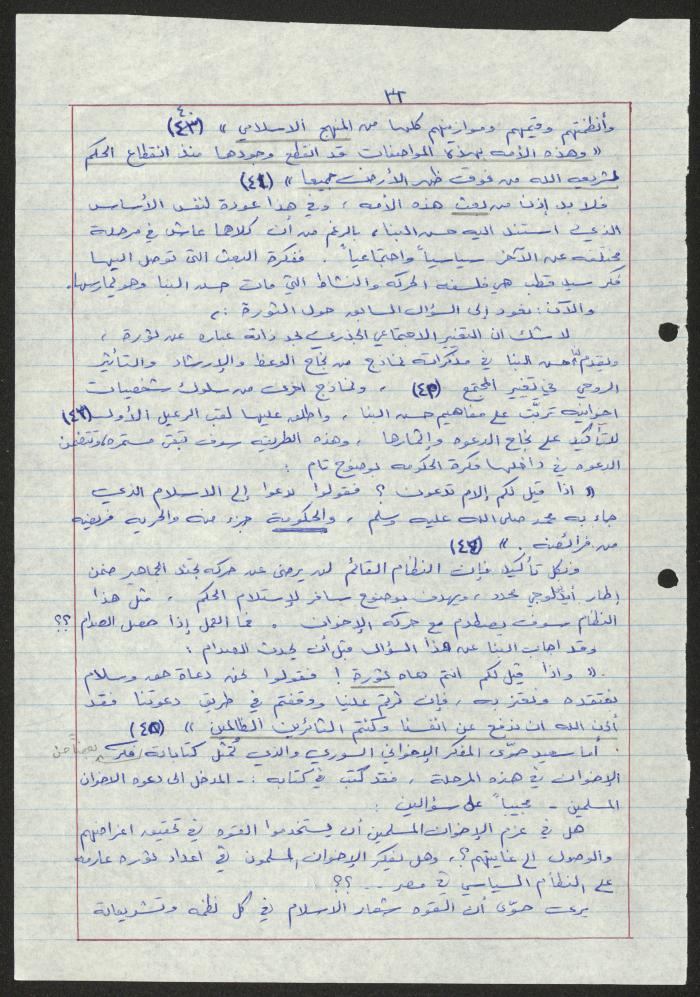 ٣٢
وأنظمتهم وقيمهم وموازينهم كلها من المنهج الاسلامي » (٤٣)
« وهذه الأمه بهذه المواصفات قد انقطع وجودها منذ انقطاع الحكم
بشريعه الله من فوق ظهر الأرض جميعا » (٤٤)
فلا بد إذن من بعث هذه الأمه ، وفي هذا عودة لنفس الأساس
الذي استند اليه حسن البناء بالرغم من أن كلاهما عاش في مرحلة
مختلفه عن الآخر سياسياً واجتماعياً . ففكرة البعث التي توصل اليها
فكر سيد قطب هي فلسفه الحركه والنشاط التي مات حسن البنا وهو يمارسها.
والآن : نعود إلى السؤال السابق حول الثورة :
لا شك ان التغيير الاجتماعي الجذري بحد ذاته عباره عن ثورة ،
ويقدم لنا حسن البنا في مذكراته نماذج من نجاح الوعظ والإرشاد والتأثير
الروحي في تغيير المجتمع (٤٥) ، ونماذج اخرى من سلوك شخصيات
اخوانيه تربّت على مفاهيم حسن البنا ، واطلق عليها لقب الرعيل الأول (٤٦)
للتأكيد على نجاح الدعوه وإثمارها ، وهذه الطريقه سوف تبقى مستمره وتتضمن
الدعوه في داخلها فكرة الحكومه بوضوح تام :
« اذا قيل لكم إلام تدعون ؟ فقولوا ندعوا إلى الاسلام الذي
جاء به محمد صلى الله عليه وسلم ، والحكومة جزء منه والحريه فريضه
من فرائضه . » (٤٧)
وبكل تأكيد فإن النظام القائم لن يرضى عن حركه تجند الجماهير ضمن
إطار أيديولوجي محدد ، ويهدف بوضوح سافر لإستلام الحكم ، مثل هذا
النظام سوف يصطدم مع حركة الإخوان . فما العمل إذا حصل الصدام ؟؟
وقد اجاب البنا عن هذا السؤال قبل أن يحدث الصدام :
« واذا قيل لكم انتم دعاة ثورة ! فقولوا نحن دعاة حق وسلام
نعتقده ونعتز به ، فإن ثرتم علينا ووقفتم في طريق دعوتنا فقد
أذن الله ان ندفع عن انفسنا وكنتم الثائرين الظالمين » (٤٨)
أما سعيد حوّى المفكر الإخواني السوري والذي تُمثّل كتاباته فكر
الإخوان في هذه المرحلة ، فقد كتب في كتابه :- المدخل الى دعوه الاخوان
المسلمين - مجيباً على سؤالين :
هل في عزم الإخوان المسلمين أن يستخدموا القوه في تحقيق اغراضهم
والوصول إلى غاياتهم ؟ ، وهل يفكر الإخوان المسلمون في اعداد ثوره عامه
على النظام السياسي في مصر .. ؟؟
يرى حوّى أن القوه شعار الاسلام في كل نظمه وتشريعاته